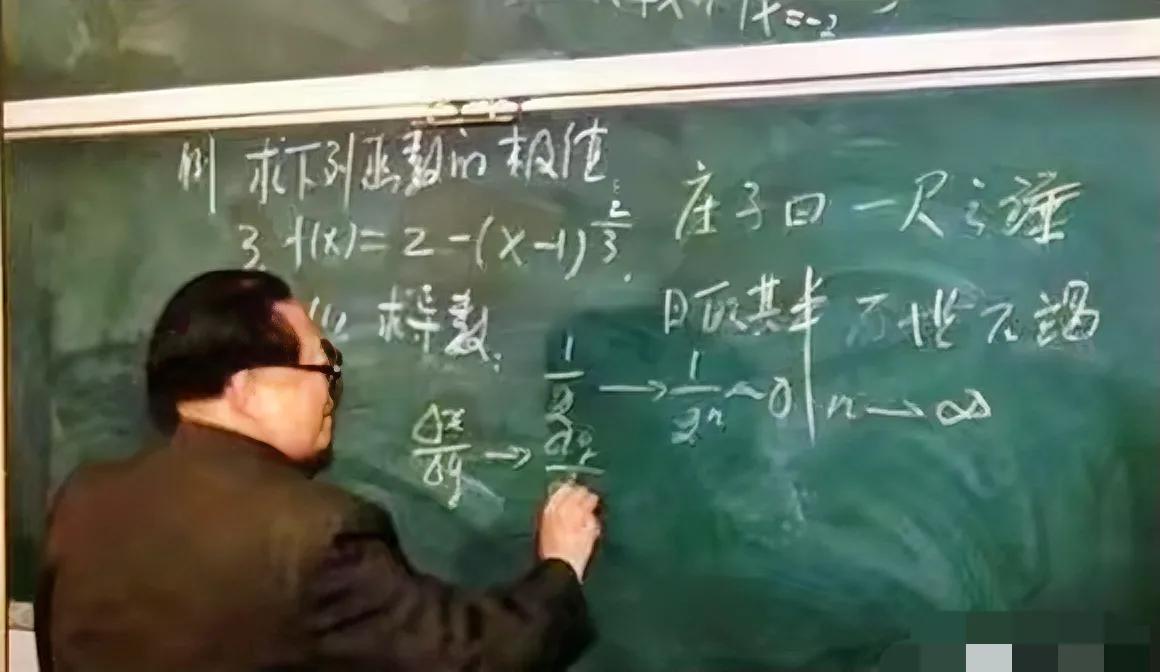 x=-2
例 求下列函数的极值
3. f(x)=2-(x-1)^{2/3}.
求导数.
Δx/Δy → dy/
庄子曰 一尺之
日取其半 不 不竭
1/2 → 1/2ⁿ ~ 0 | n → ∞